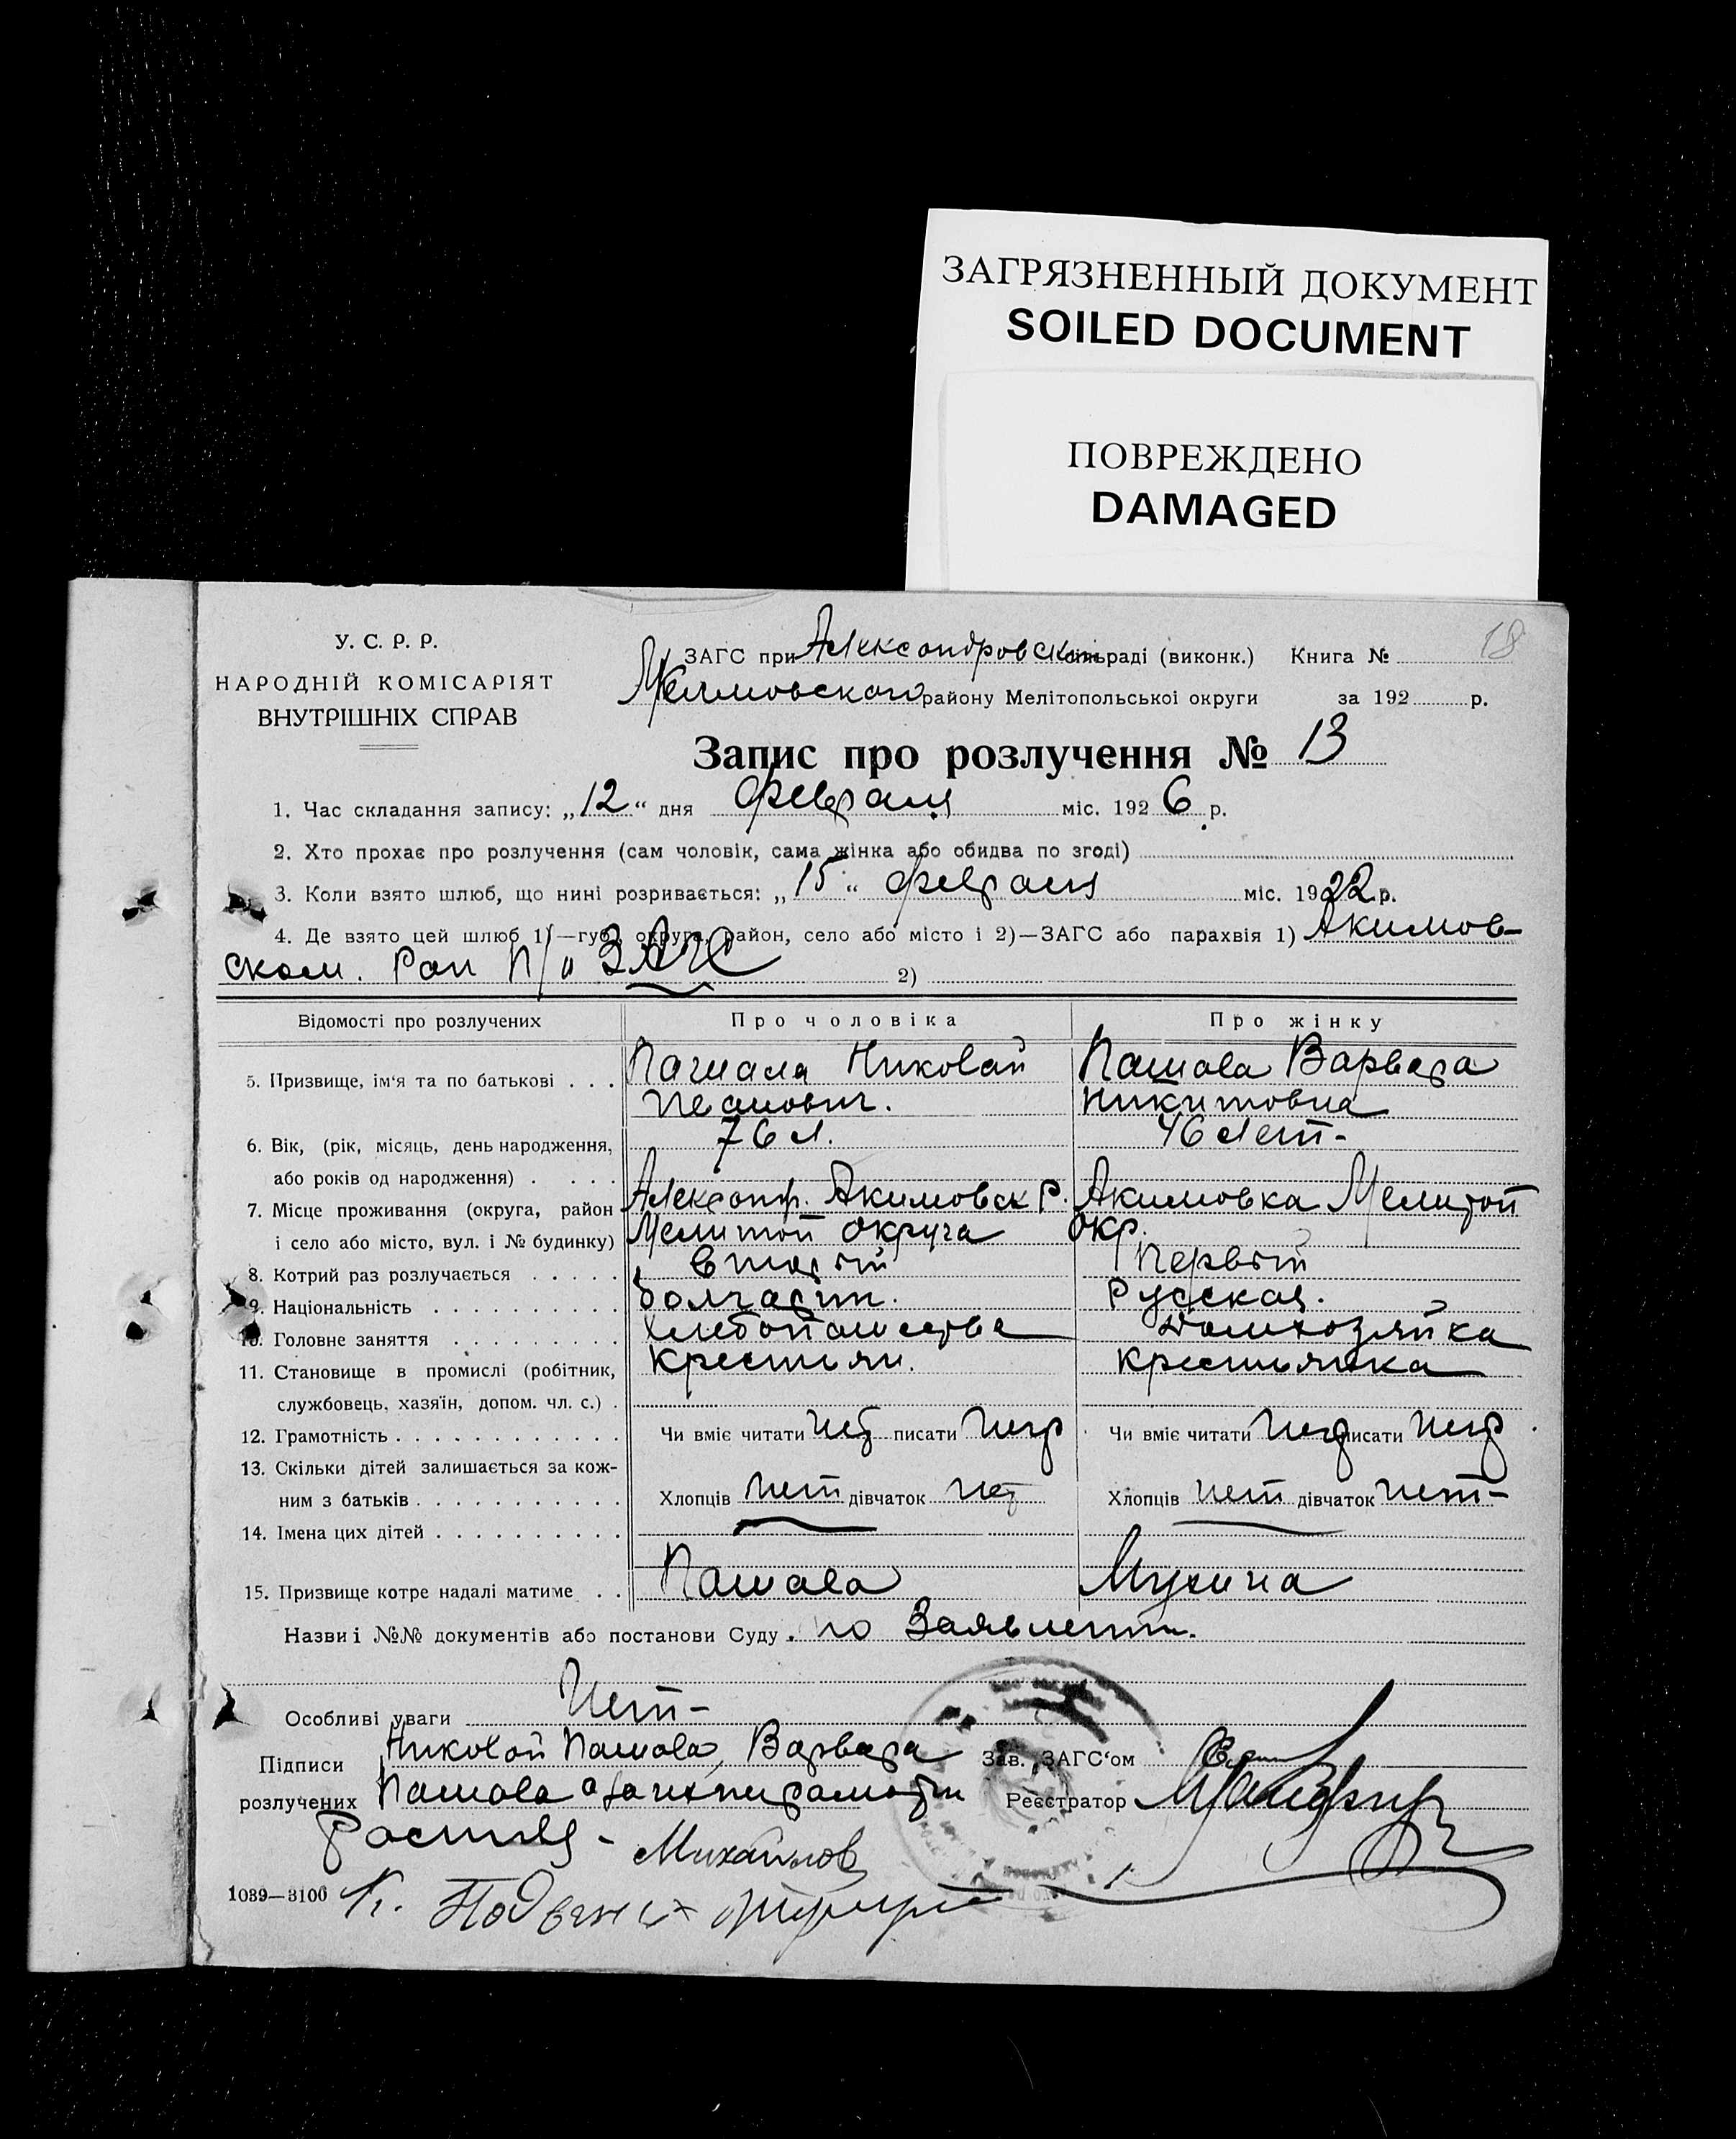 ЗАГРЯЗНЕННЫЙ ДОКУМЕНТ
SOILED DOCUMENT
ПОВРЕЖДЕНО
DAMAGED
У. С. Р. Р.
НАРОДНІЙ КОМІСАРІЯТ
ВНУТРІШНІХ СПРАВ
18
ЗАГС при Александровском сільраді (виконк.) Книга №
району Мелітопольської округи за 192 р.
Запис про розлучення № 13
1. Час складання запису: „12“ дня февраля міс. 1926 р.
2. Хто прохає про розлучення (сам чоловік, сама жінка або обидва по згоді)
3. Коли взято шлюб, що нині розривається: „15“ февраля міс. 1922 р.
4. Де взято цей шлюб 1)—губ., округа, район, село або місто і 2)—ЗАГС або парахвія 1) Акимов-
ском. Рай ЗАГС 2)
Відомості про розлучених Про чоловіка Про жінку
5. Призвище, ім'я та по батькові . . . Николай Пашова Варвара
Никитовна
6. Вік, (рік, місяць, день народження, 76 л. 46 лет-
або років од народження) . . . .
7. Місце проживання (округа, район Александр. Акимовск Р. Акимовка Мелитоп
і село або місто, вул. і № будинку) Мелитоп округа окр.
8. Котрий раз розлучається . . . . . второй Первый
9. Національність . . . . . . . . . . болгарин. Русская.
10. Головне заняття . . . . . . . . . хлебопашество Домхозяйка
11. Становище в промислі (робітник, крестьян. крестьянка
службовець, хазяїн, допом. чл. с.) .
12. Грамотність . . . . . . . . . . . . Чи вміє читати нет писати нет Чи вміє читати нет писати нет
13. Скільки дітей залишається за кож-
ним з батьків . . . . . . . . . . . Хлопців нет дівчаток нет Хлопців нет дівчаток нет-
14. Імена цих дітей . . . . . . . . . .
15. Призвище котре надалі матиме . . Пашова Мухина
Назви і №№ документів або постанови Суду . по Заявлению.
Особливі уваги Нет-
Підписи Николай Пашова, Варвара Зав. ЗАГС'ом
розлучених Пашова Реєстратор
Михайлов
1089—3100